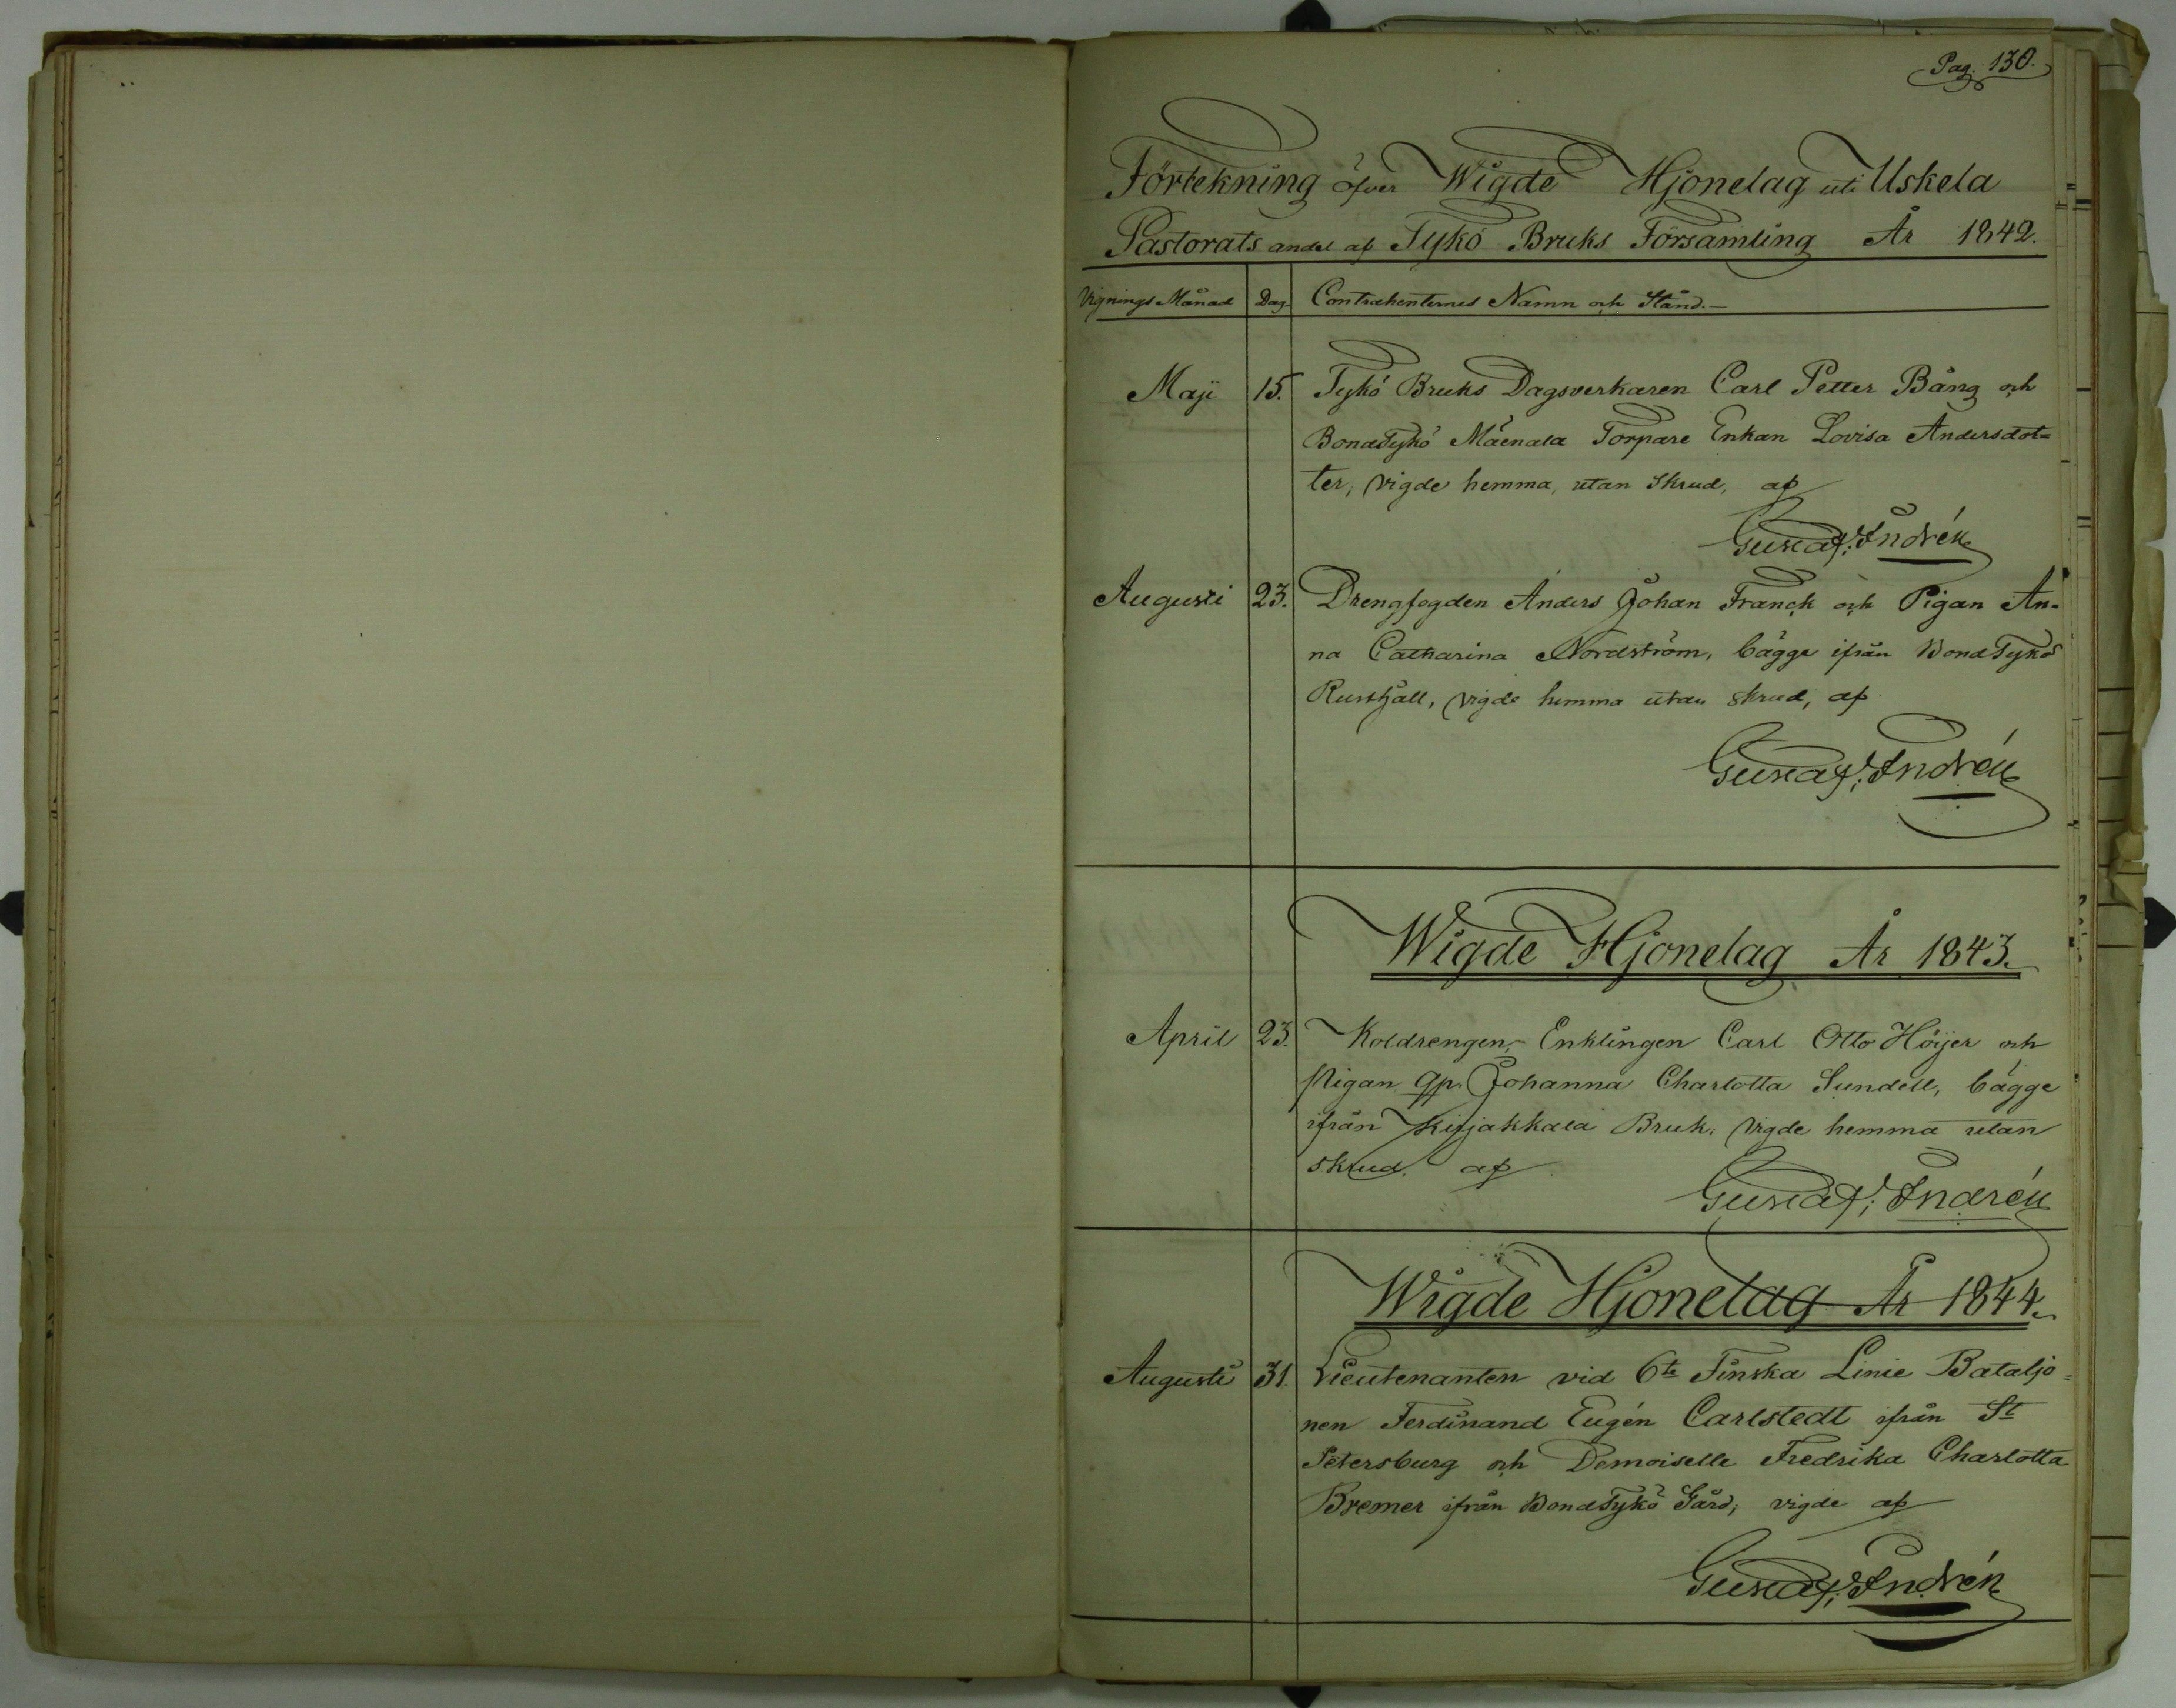 Pag. 130.
Förtekning öfver Wigde Hjonelag uti Uskela
Pastorats andel af Tykö Bruks Församling År 1842.
Vignings Månad Dag Contrahenternes Namn och Stånd.-
Maji 15. Tykö Bruks Dagsverkaren Carl Petter Bång och
BondTykö Mäenala Torpare Enkan Lovisa Andersdot=
ter, vigde hemma, utan Skrud, af
Gustaf Andrén
Augusti 23. Drengfogden Anders Johan Franck och Pigan An-
na Catharina Nordström, bägge ifrån BondTykö
Rusthåll, vigde hemma utan skrud, af
Gustaf Andrén
Wigde Hjonelag År 1843.
April 23. Koldrengen, Enklingen Carl Otto Höijer och
Pigan qp. Johanna Charlotta Sundell, bägge
ifrån Kirjakkala Bruk, vigde hemma utan
skrud, af
Gustaf Andrén
Wigde Hjonelag År 1844.
Augusti 31. Lieutenanten vid 6te Finska Linie Bataljo=
nen Ferdinand Eugén Carlstedt ifrån St
Petersburg och Demoiselle Fredrika Charlotta
Bremer ifrån BondTykö Gård, vigde af
Gustaf Andrén